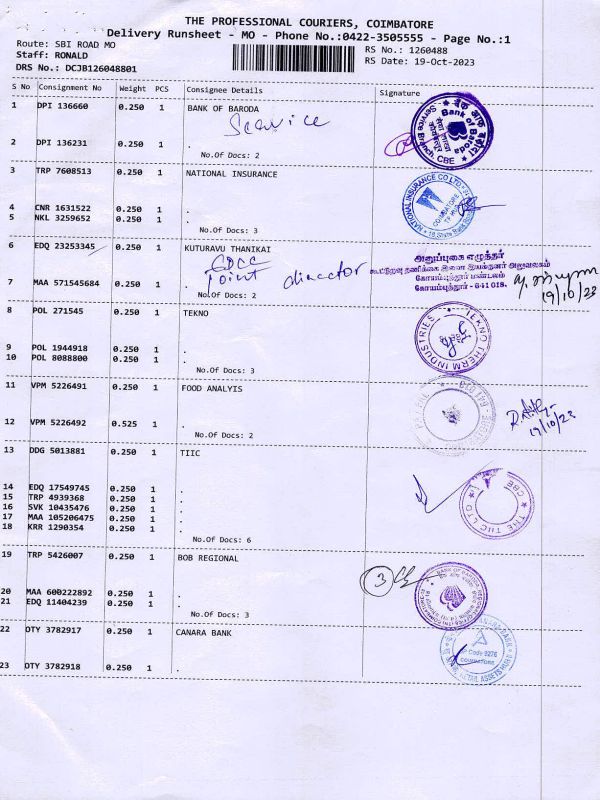 THE PROFESSIONAL COURIERS, COIMBATORE
Delivery Runsheet - MO - Phone No.:0422-3505555 - Page No.:1
Route: SBI ROAD MO
RS No.: 1260488
Staff: RONALD
RS Date: 19-Oct-2023
DRS No.: DCJB126048801
S No Consignment No Weight PCS Consignee Details Signature
1 DPI 136660 0.250 1 BANK OF BARODA
Service
2 DPI 136231 0.250 1 .
No.Of Docs: 2
Bank of Baroda
Service Branch, CBE
3 TRP 7608513 0.250 1 NATIONAL INSURANCE
4 CNR 1631522 0.250 1 .
5 NKL 3259652 0.250 1 .
No.Of Docs: 3
NATIONAL INSURANCE CO LTD.
COIMBATORE
6 EDQ 23253345 0.250 1 KUTURAVU THANIKAI
point director
7 MAA 571545684 0.250 1 .
No.Of Docs: 2
அனுப்புகை எழுத்தர்
கோயம்புத்தூர் மண்டலம்
கோயம்புத்தூர் - 641 018.
19/10/23
8 POL 271545 0.250 1 TEKNO
9 POL 1944918 0.250 1 .
10 POL 8088800 0.250 1 .
No.Of Docs: 3
TEKNO THERM INDUSTRIES
11 VPM 5226491 0.250 1 FOOD ANALYIS
12 VPM 5226492 0.525 1 .
No.Of Docs: 2
19/10/23
13 DDG 5013881 0.250 1 TIIC
14 EDQ 17549745 0.250 1 .
15 TRP 4939368 0.250 1 .
16 SVK 10435476 0.250 1 .
17 MAA 105206475 0.250 1 .
18 KRR 1290354 0.250 1 .
No.Of Docs: 6
THE TIIC LTD
CBE
19 TRP 5426007 0.250 1 BOB REGIONAL
3
20 MAA 600222892 0.250 1 .
21 EDQ 11404239 0.250 1 .
No.Of Docs: 3
22 OTY 3782917 0.250 1 CANARA BANK
23 OTY 3782918 0.250 1 .
COIMBATORE
RETAIL ASSETS HUB